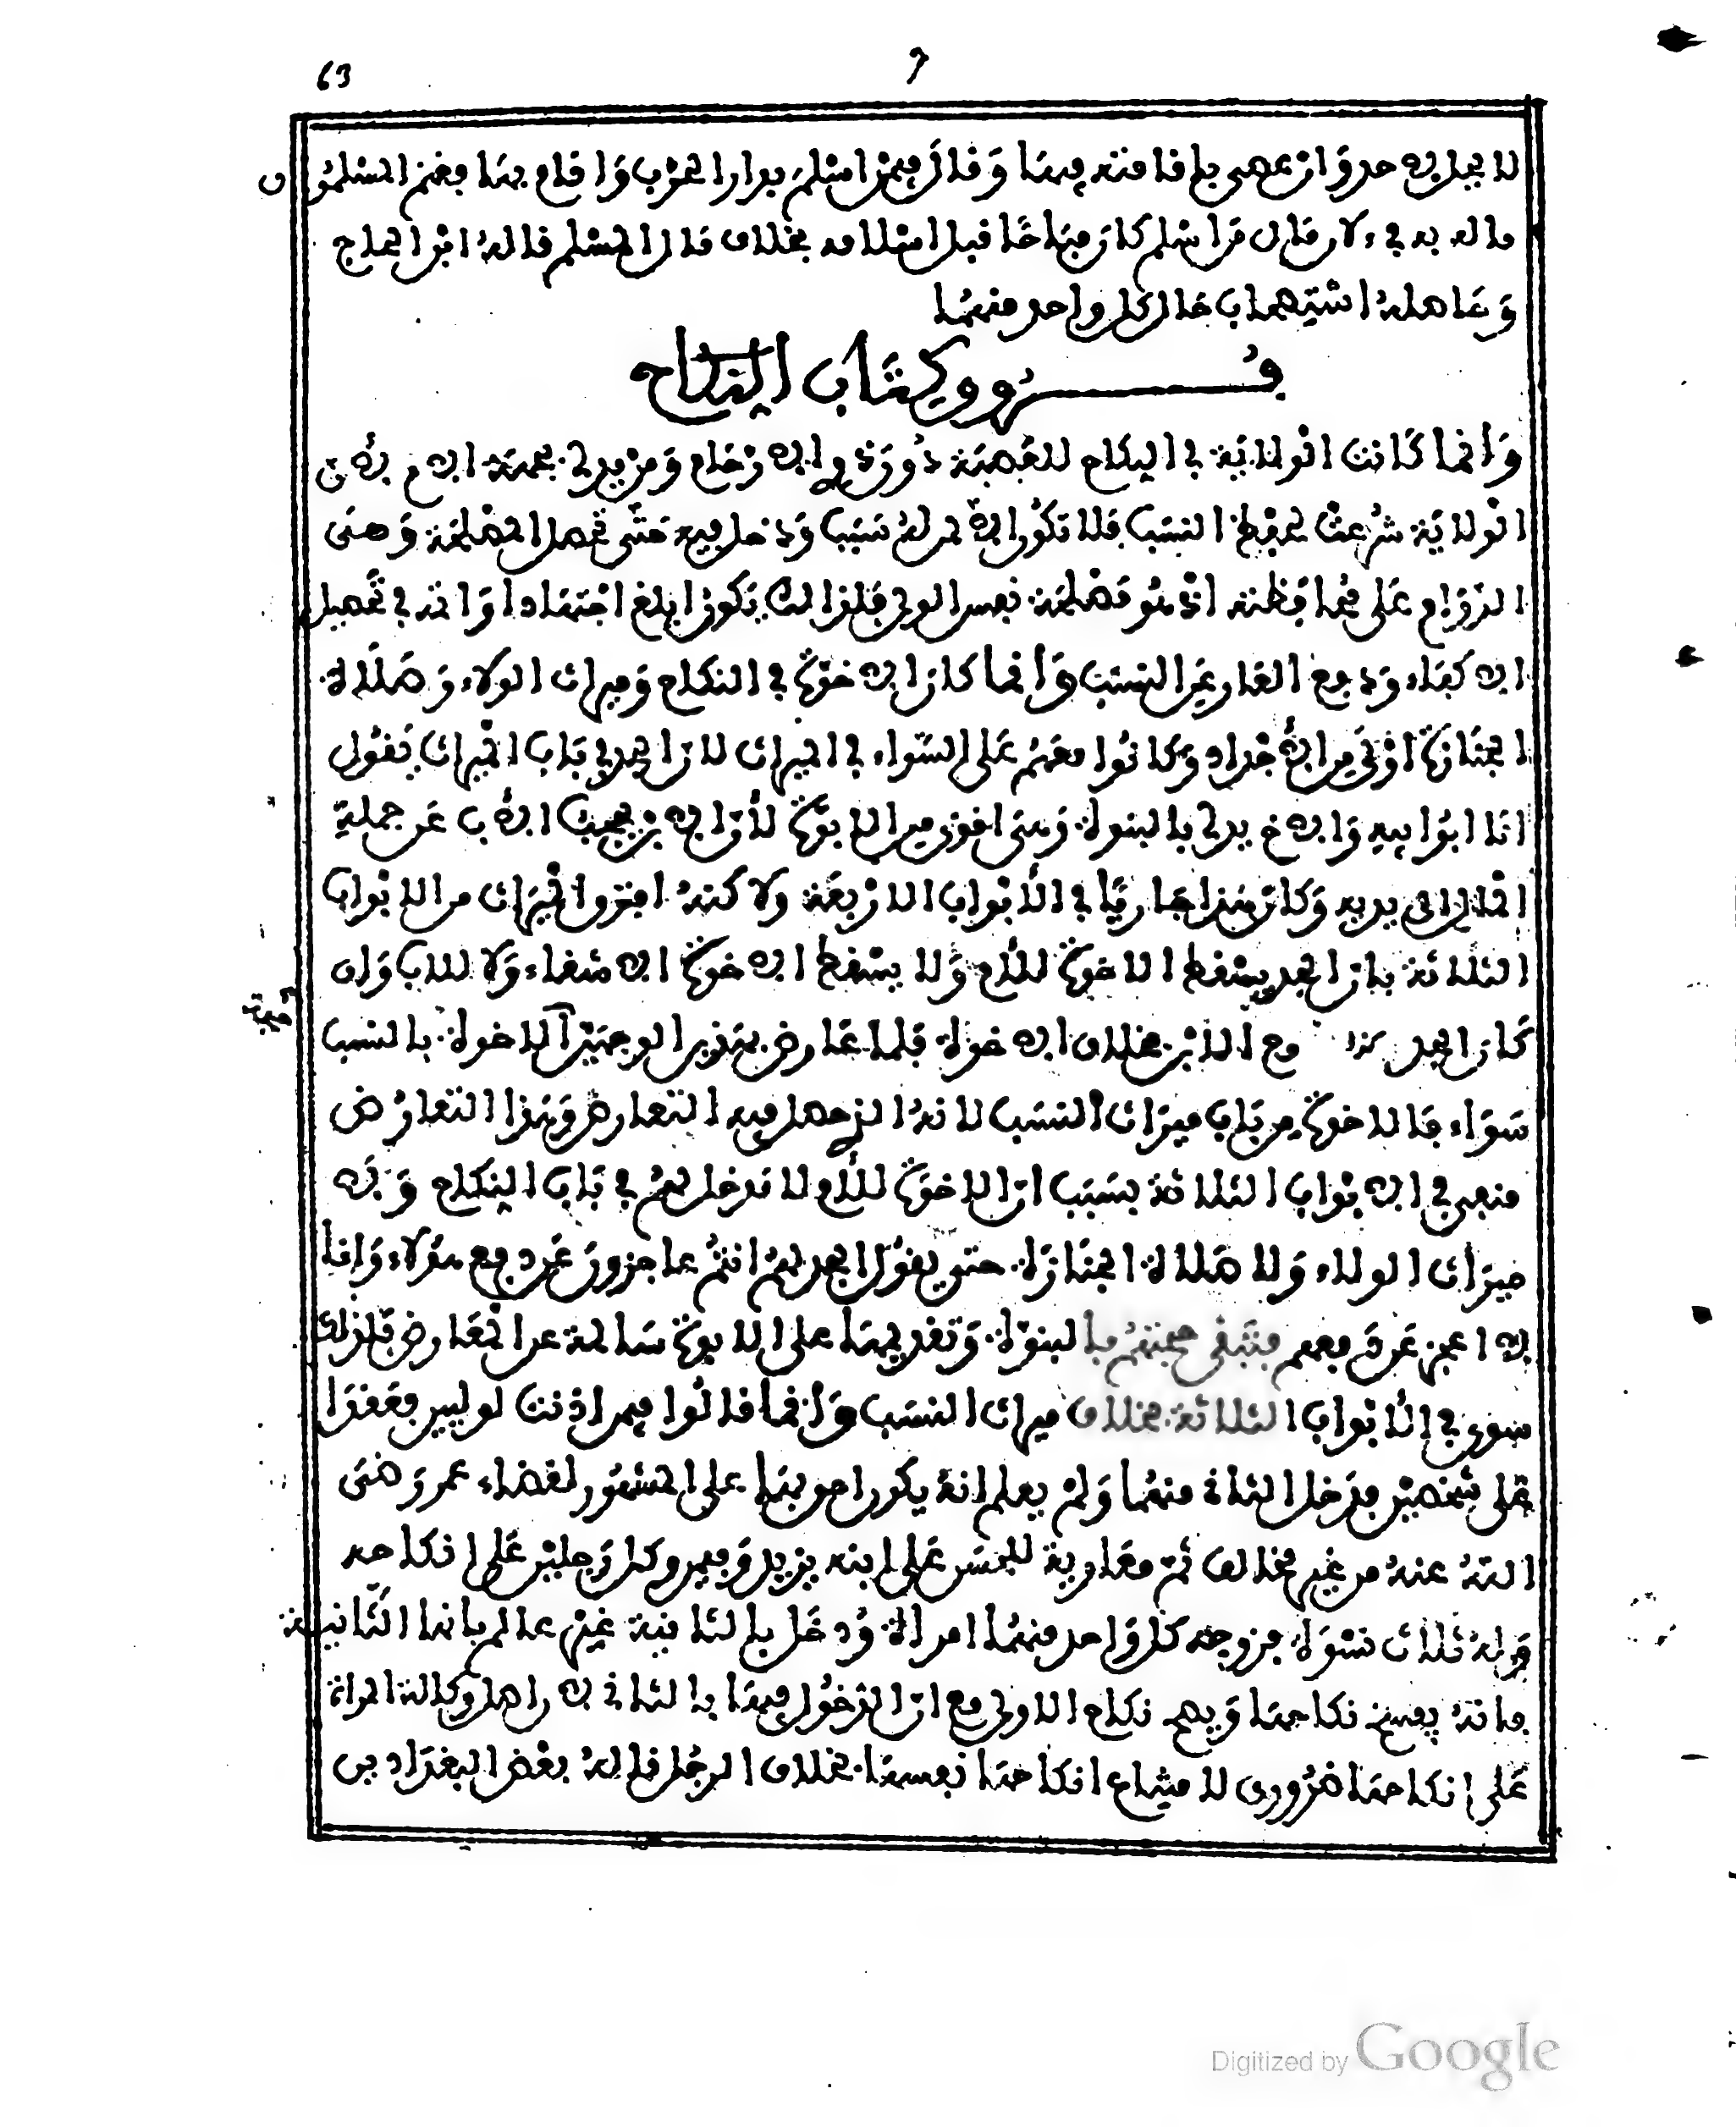 63
لا يحل لاحد وان عصى باقامته فيها وقال فيمن اسلم بدار الحرب واقام بها فغنم المسلمون
ماله به فيء لان مال من اسلم كان مباحا قبل اسلامه بخلاف مال المسلم قاله ابن الحاج
وحاصله استصحاب حال كل واحد منهما
فروق كتاب النكاح
وانما كانت الولاية في النكاح للعصبة دون ذوي الارحام ومن يدلي بجهة الام لان
الولاية شرعت لحفظ النسب فلا تكون الا لمن له نسب ودخل فيه حتى تحصل المصلحة وهي
الزوج على محافظة مصلحة نفس الولي فلذلك يكون ابلغ اجتهادا واتم في تحصيل
الاكفاء ودفع العار عن النسب وانما كان الاخوة في النكاح وميراث الولاء وصلاة
الجنازة اولى من الاجداد وكانوا معهم على السواء في الميراث لان الجد في باب الميراث يقول
انا ابو ابيه والاخ يدلي بالبنوة وهي اقوى من الابوة لان الابن يحجب الاب عن جملة
المال الى سدسه وكان هذا جاريا في الابواب الاربعة ولاكنه افترق الميراث من الابواب
الثلاثة بان الجد يسقط الاخوة للام ولا يسقط الاخوة الاشقاء ولا للاب وان
كان الجد يرث مع الابن بخلاف الاخوة فلما عارض بهذين الوجهين الاخوة بالنسب
سواء فالاخوة من باب ميراث النسب لانه الذي حصل فيه التعارض وهذا التعارض
منفي في الابواب الثلاثة بسبب ان الاخوة للام لا تدخل لهم في باب النكاح ولا
ميراث الولاء ولا صلاة الجنازة حتى يقول الجد لهم انتم عاجزون عن دفع هؤلاء وانا
لا اعجز عن دفعهم فتبقى حجتهم بالبنوة وتقديمها على الابوة سالمة عن المعارض فلذلك
سوى في الابواب الثلاثة بخلاف ميراث النسب وانما قالوا فيمن اذنت لوليين فعقدا
على شخصين فدخل الثاني منهما ولم يعلم انه يكون احق بها على المشهور لقضاء عمر رضي
الله عنه من غير مخالف ثم معاوية للحسن على ابنه يزيد وفيمن وكل رجلين على انكاحه
وله ثلاث نسوة فزوجه كل واحد منهما امراة ودخل بالثانية غير عالم بانها الثانية
فانه يفسخ نكاحها ويصح نكاح الاولى مع ان الدخول فيها بالثاني لان اصل وكالة المراة
على انكاحها ضروري لامتناع انكاحها نفسها بخلاف الرجل قاله بعض البغداديين
Digitized by Google